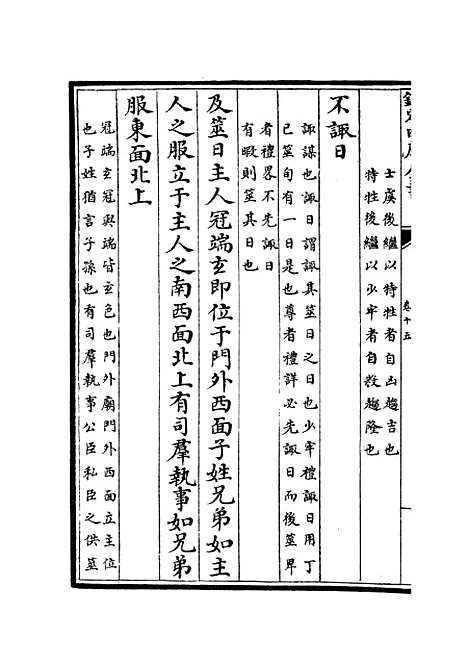 士虞後繼以特牲者自凶趨吉也
特牲後繼以少牢者自殺趨隆也
不諏日
諏謀也諏日謂諏其筮日之日也少牢禮諏日用丁
已筮旬有一日是也尊者禮詳必先諏日而後筮卑
者禮畧不先諏日
有暇則筮其日也
及筮日主人冠端玄即位于門外西面子姓兄弟如主
人之服立于主人之南西面北上有司羣執事如兄弟
服東面北上
冠端玄冠與端皆玄色也門外廟門外西面立主位
也子姓猶言子孫也有司羣執事公臣私臣之供筮
卷十五